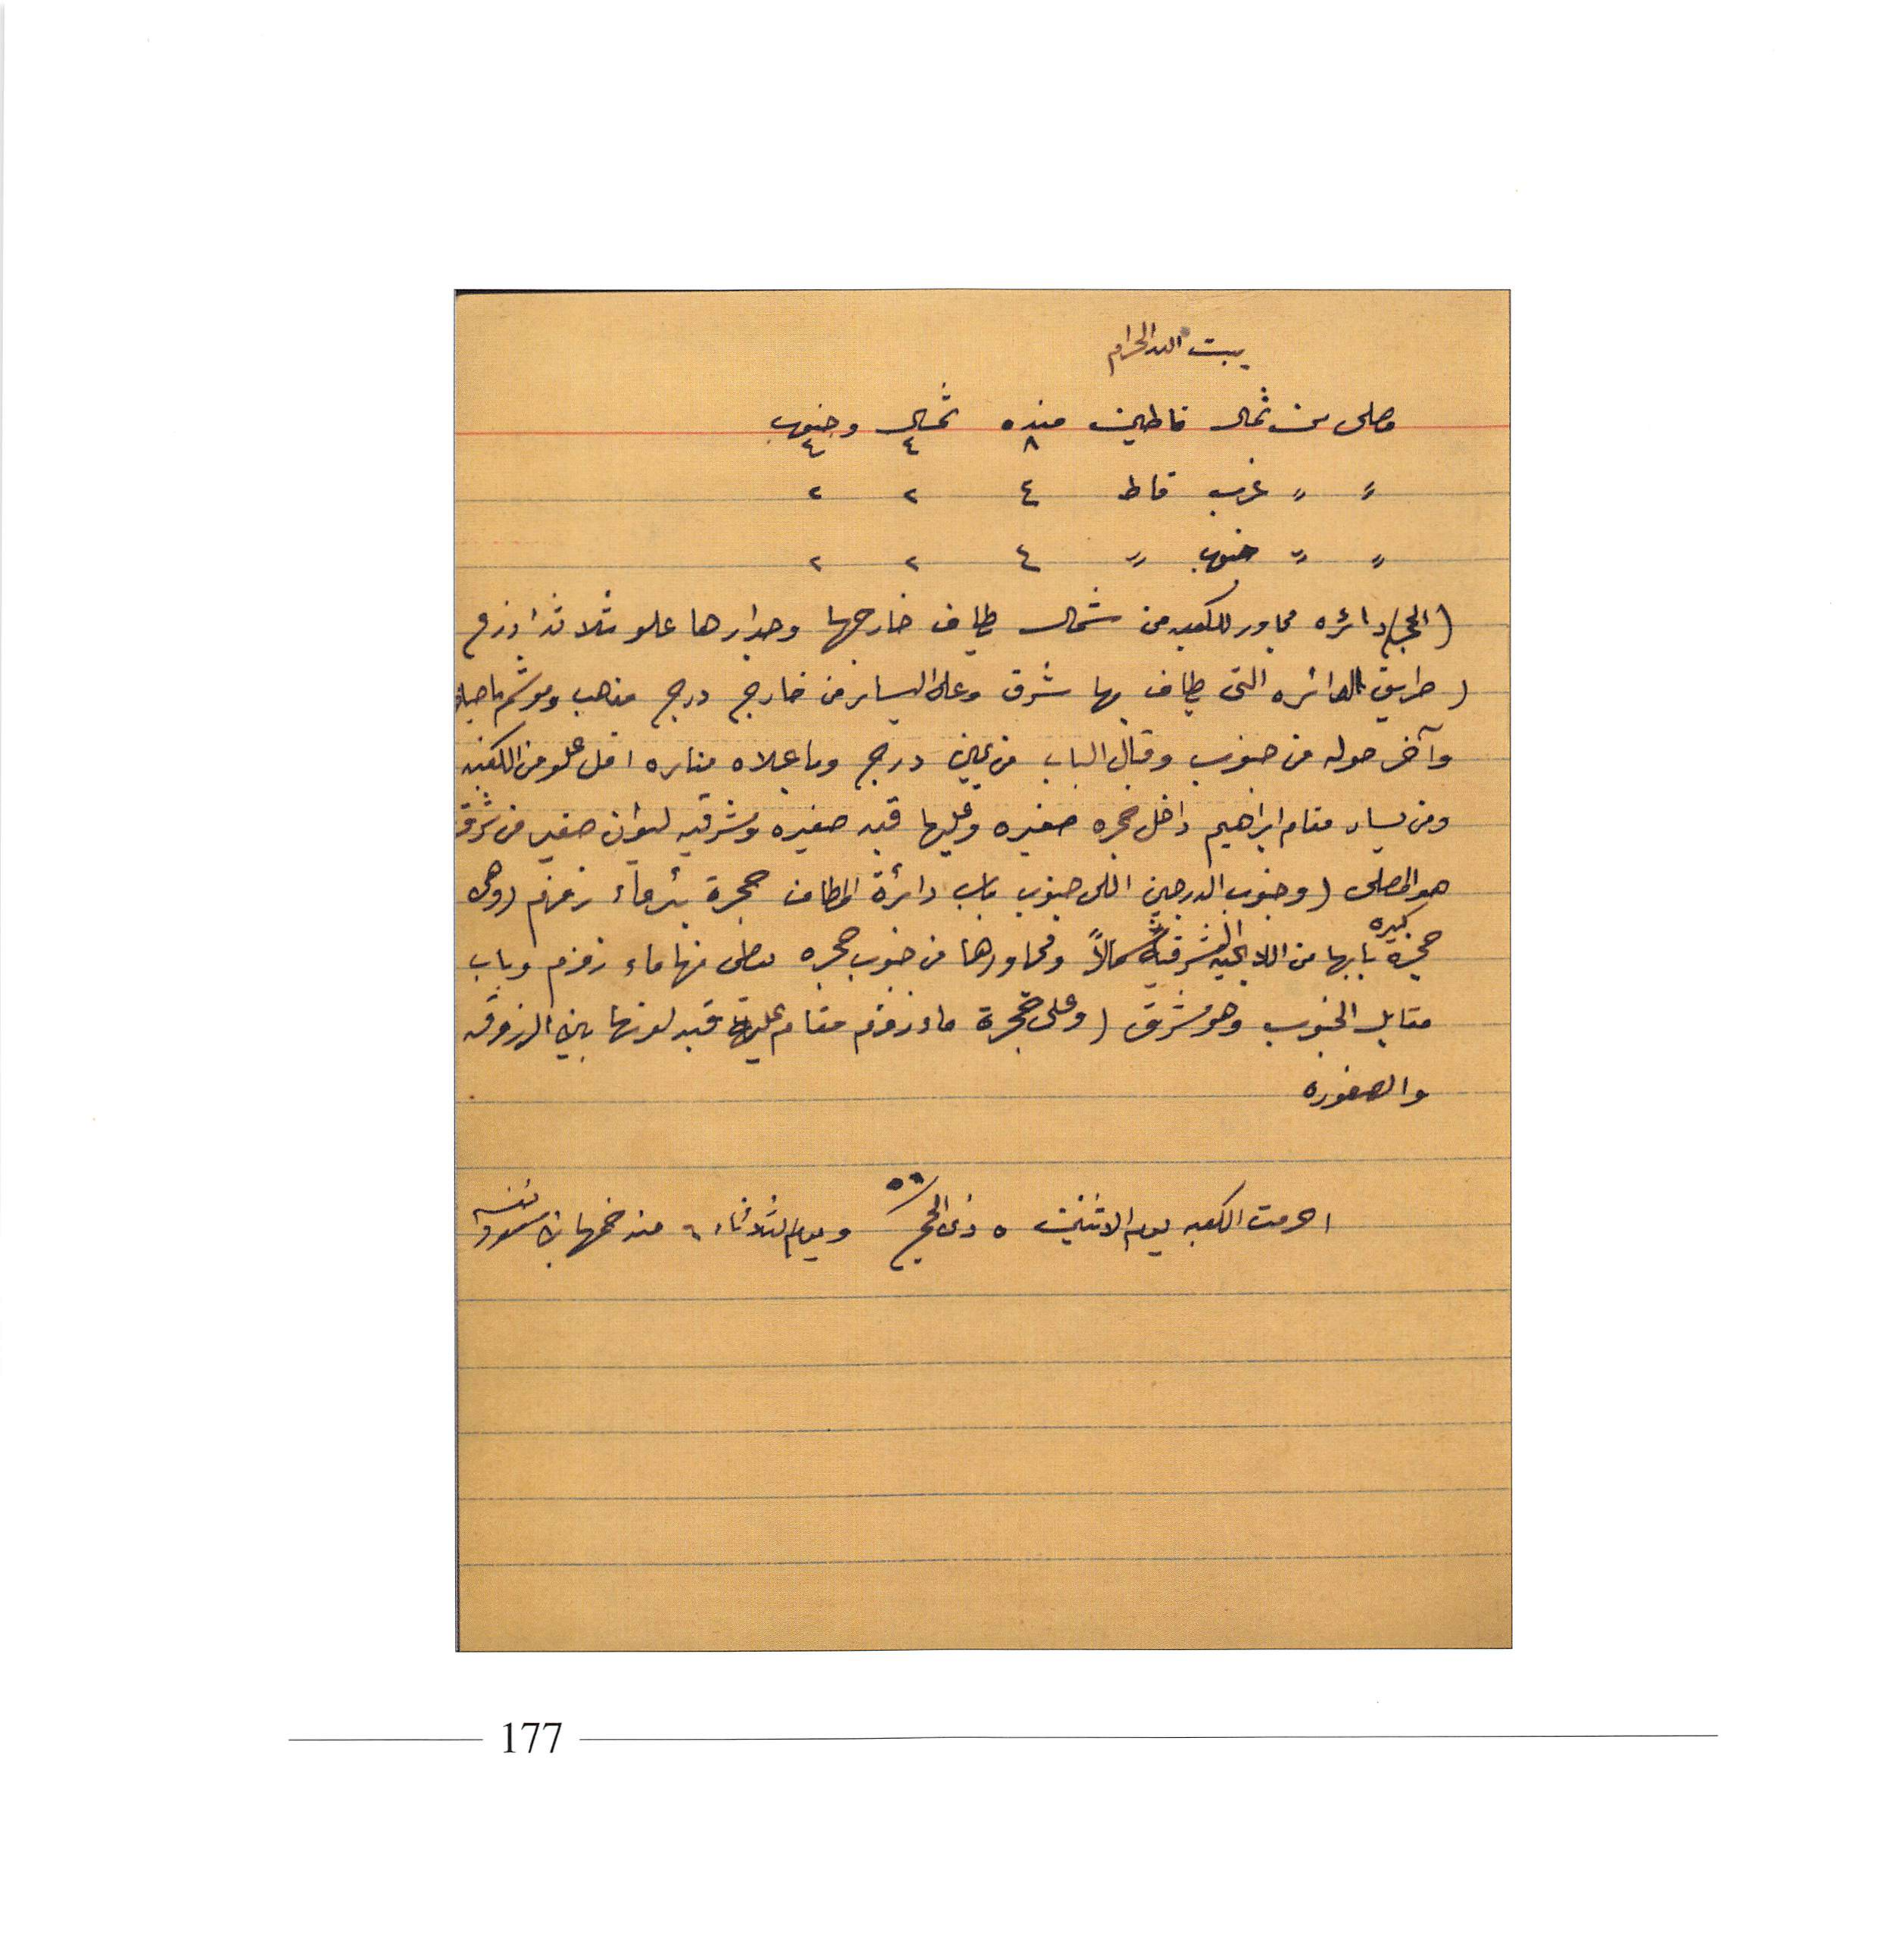 بيت الله الحرام
مصلى من شمال قاطين منده ٨ شمال ٤ وجنوب ٤
〃 〃 غرب قاط ٤ ٢ ٢
〃 〃 جنوب 〃 ٤ ٢ ٢
(الحجر) دائره مجاور للكعبه من شمال يطاف خارجها وجدارها علو ثلاثة اذرع
( طريق الدائره التى يطاف بها شرق وعلى اليسار من خارج درج مذهب
وآخر حوله من جنوب وقبال الباب من يمين درج وباعلاه مناره اقل علو من الكعبه
ومن يسار مقام ابراهيم داخل حجره صغيره وعليها قبه صغيره وشرقيه ليوان صغير من شرق
هو المصلى (وجنوب الدرجين اللى جنوب باب دائرة المطاف حجرة بئر ماء زمزم (وهى
حجره كبيره بابها من الشرقية شمالاً ومجاورها من جنوب حجره يعطى منها ماء زمزم وباب
مقابل الجنوب وهو شرق (وعلى حجرة ماء زمزم مقام عليه قبه لونها بين الزروقه
والصفوره
احرمت الكعبه يوم الاثنين ٥ ذى الحج ٥٦ ويوم الثلاثاء ٦
177